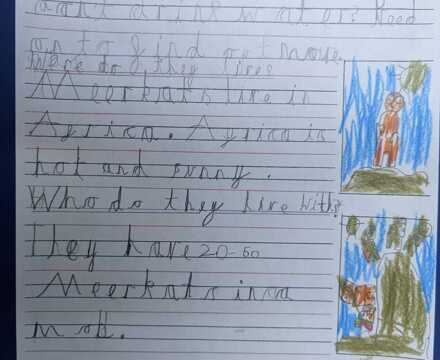 don't drink water? Read
on to find out more.
Were do they lives
Meerkats live in
Africa. Africa is
hot and sunny.
Who do they live with?
They have 20-50
Meerkats in a
mob.